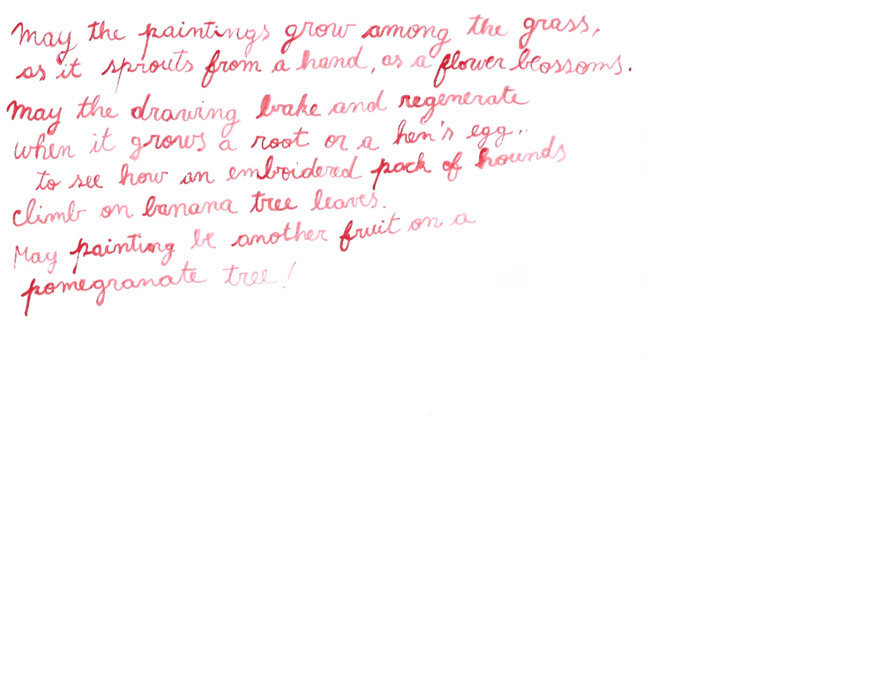 May the paintings grow among the grass,
as it sprouts from a hand, as a flower blossoms.
May the drawing brake and regenerate
when it grows a root or a hen's egg..
to see how an emboidered pack of hounds
climb on banana tree leaves.
May painting be another fruit on a
pomegranate tree!